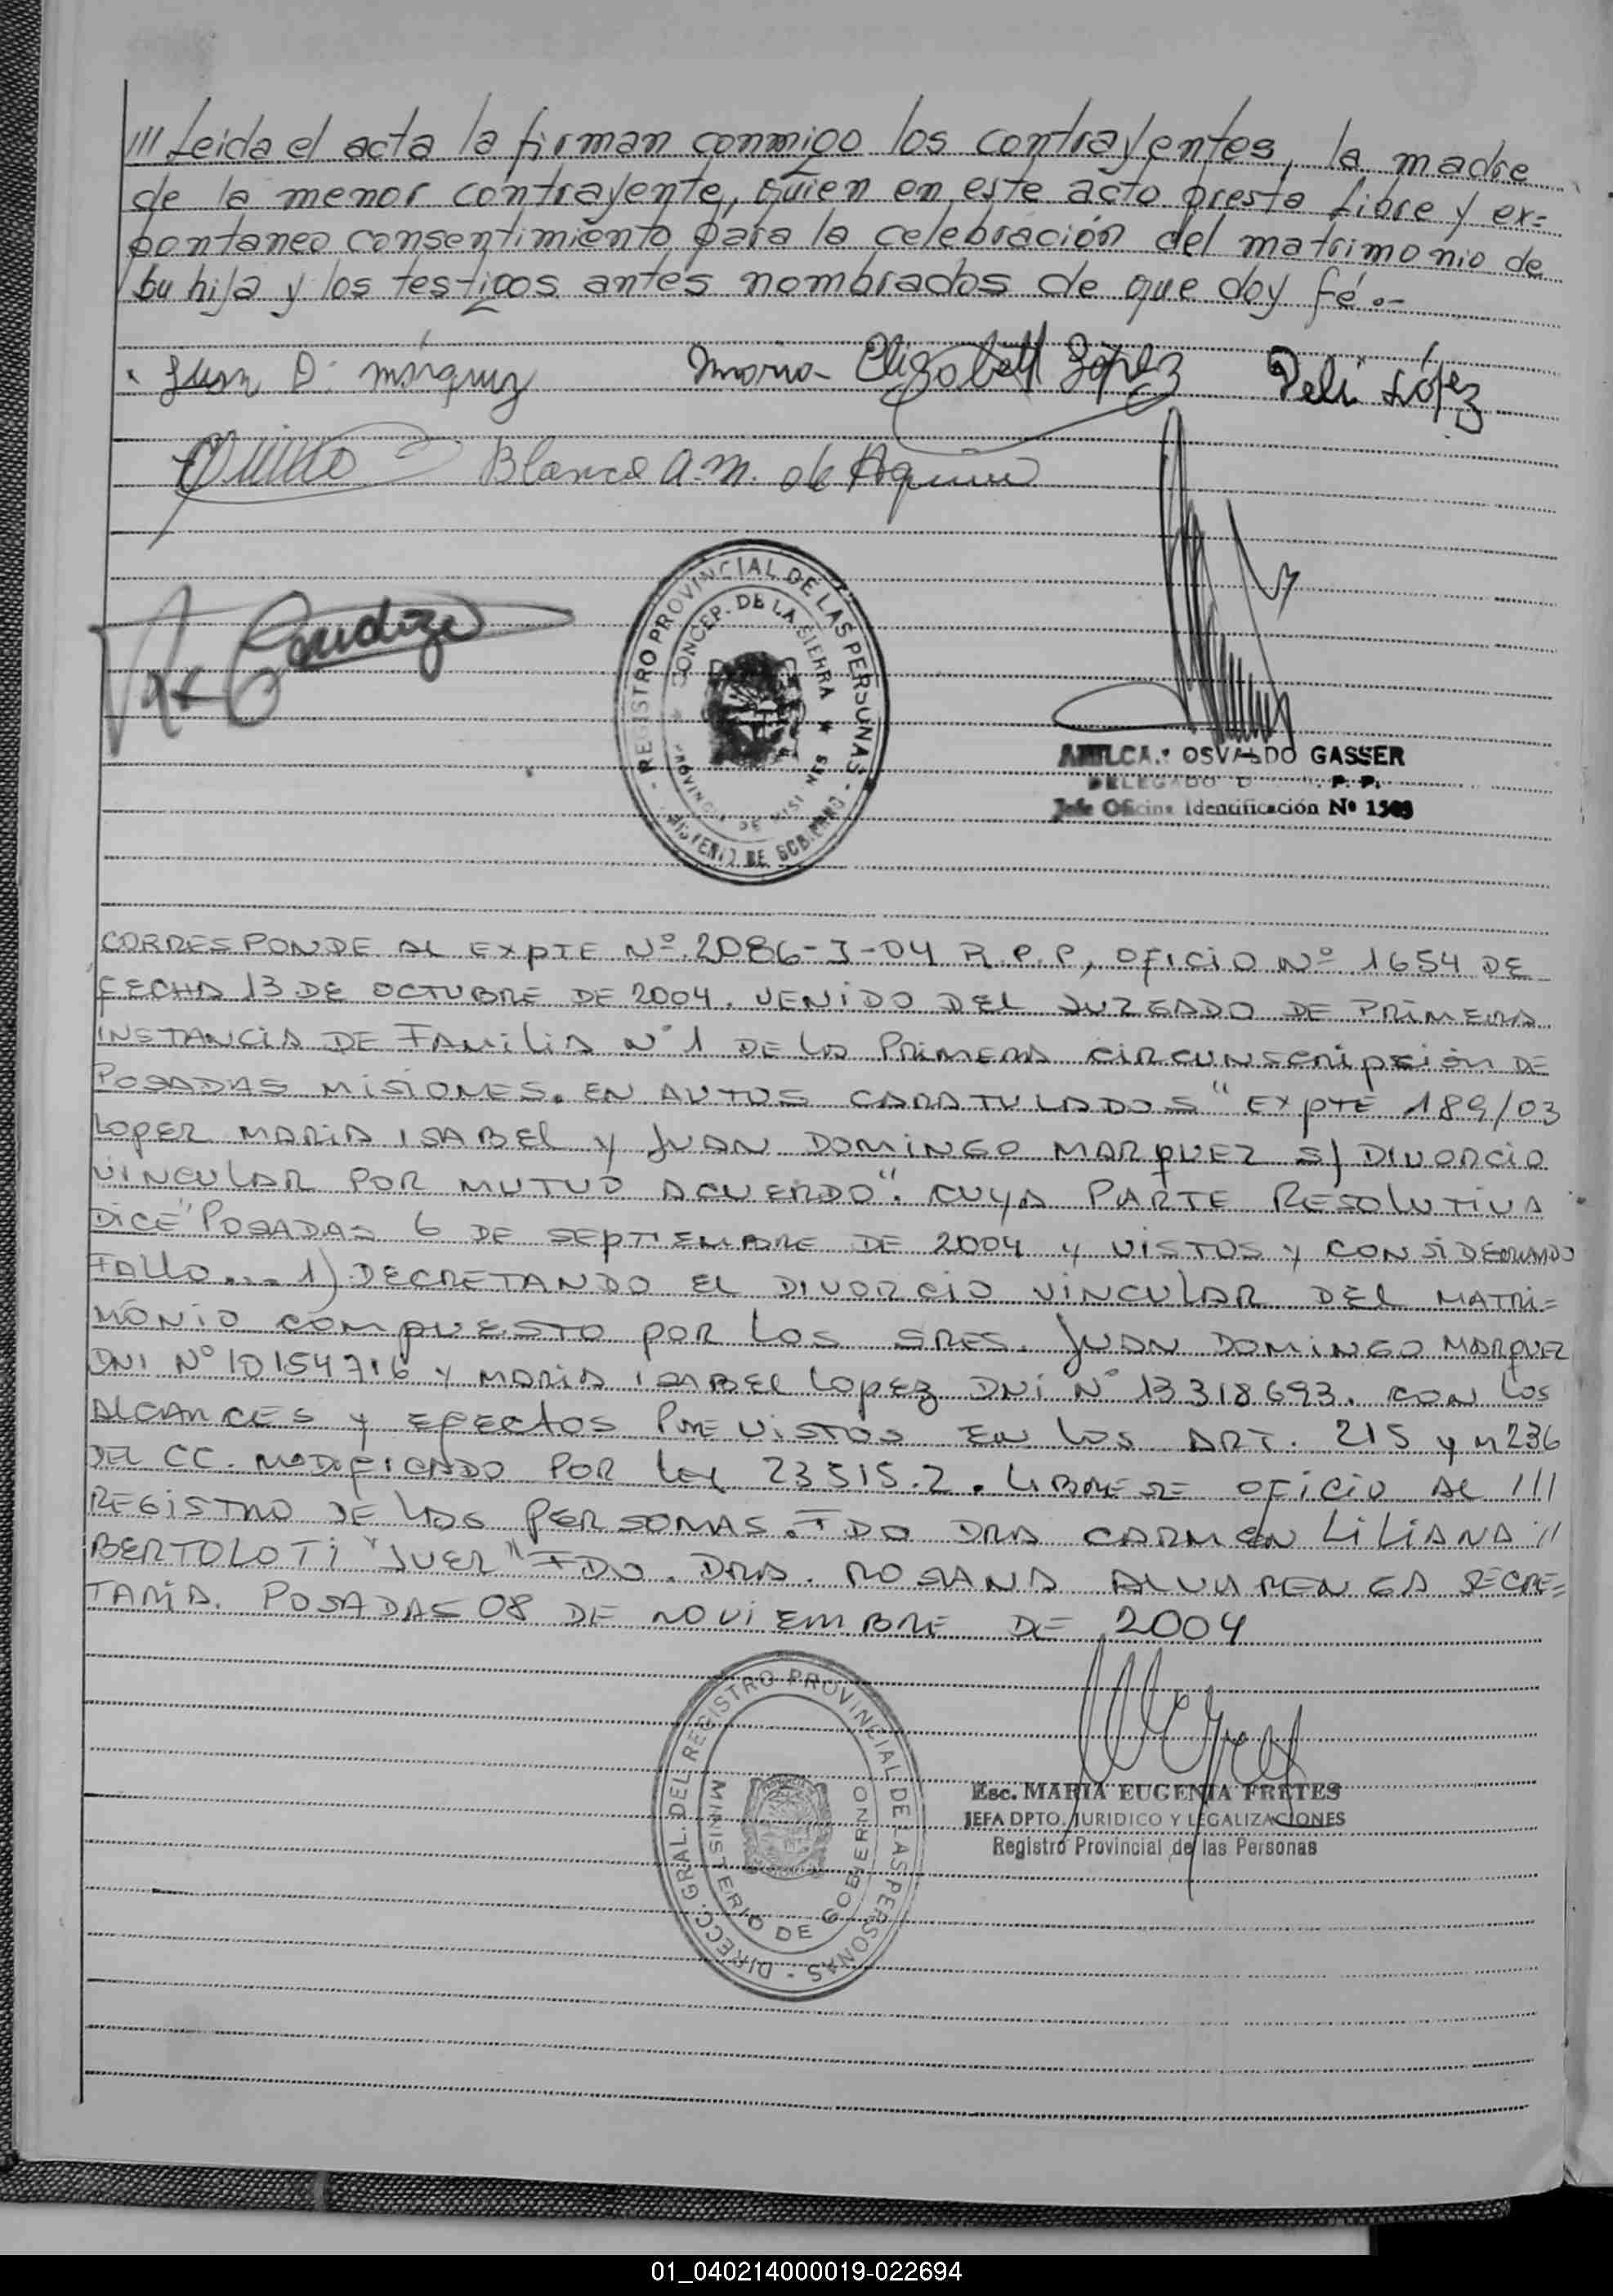 /// Leida el acta la firman conmigo los contrayentes, la madre
de la menor contrayente, quien en este acto presta libre y ex=
pontaneo consentimiento para la celebración del matrimonio de
su hija y los testigos antes nombrados de que doy fé.-
Juan D. Márquez Maria Elizabeth López Deli López
Blanca A. M. de Aquino
REGISTRO PROVINCIAL DE LAS PERSONAS
CONCEP. DE LA SIERRA
PROVINCIA DE MISIONES
MINISTERIO DE GOBIERNO
AMILCAR OSVALDO GASSER
DELEGADO P. P.
Jefe Oficina Identificación Nº
CORRESPONDE AL EXPTE Nº 2086-J-04 R.P.P, OFICIO Nº 1654 DE
FECHA 13 DE OCTUBRE DE 2004. VENIDO DEL JUZGADO DE PRIMERA
INSTANCIA DE FAMILIA Nº 1 DE LA PRIMERA CIRCUNSCRIPCIÓN DE
POSADAS MISIONES. EN AUTOS CARATULADOS "EXPTE 189/03
LOPEZ MARIA ISABEL Y JUAN DOMINGO MARQUEZ S/ DIVORCIO
VINCULAR POR MUTUO ACUERDO". CUYA PARTE RESOLUTIVA
DICE "POSADAS 6 DE SEPTIEMBRE DE 2004 Y VISTOS Y CONSIDERANDO
FALLO... 1) DECRETANDO EL DIVORCIO VINCULAR DEL MATRI=
MONIO COMPUESTO POR LOS SRES. JUAN DOMINGO MARQUEZ
DNI Nº 10154716 Y MARIA ISABEL LOPEZ DNI Nº 13318.693. CON LOS
ALCANCES Y EFECTOS PREVISTOS EN LOS ART. 215 y 236
DEL CC. MODIFICADO POR LEY 23515.2. LIBRESE OFICIO AL ///
REGISTRO DE LAS PERSONAS. FDO DRA CARMEN LILIANA //
BERTOLOTI "JUEZ" FDO. DRA. ROSANA ALVARENGA SECRE=
TARIA. POSADAS 08 DE NOVIEMBRE DE 2004
DIRECC. GRAL. DEL REGISTRO PROVINCIAL DE LAS PERSONAS -
MINISTERIO DE GOBIERNO
Esc. MARIA EUGENIA FRETES
JEFA DPTO. JURIDICO Y LEGALIZACIONES
Registro Provincial de las Personas
01_040214000019-022694